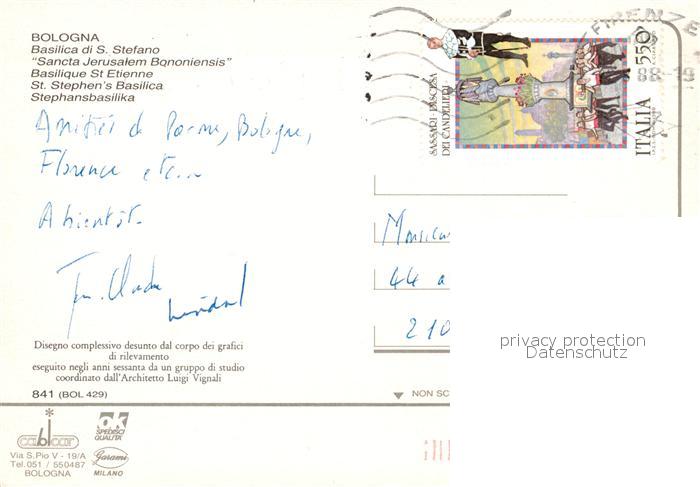 BOLOGNA
Basilica di S. Stefano
"Sancta Jerusalem Bononiensis"
Basilique St Etienne
St. Stephen's Basilica
Stephansbasilika
Amitiés de Parme, Bologne,
Florence etc...
A bientôt.
Jean-Claude
Disegno complessivo desunto dal corpo dei grafici
di rilevamento
eseguito negli anni sessanta da un gruppo di studio
coordinato dall'Architetto Luigi Vignali
841 (BOL 429)
cablcar
Via S.Pio V - 19/A
Tel. 051 / 550487
BOLOGNA
OK
SPEDISCI
QUALITÀ
Garami
MILANO
FIRENZE
SASSARI - DISCESA
DEI CANDELIERI
ITALIA 550
Monsieur
44 a
210
NON SC
privacy protection
Datenschutz